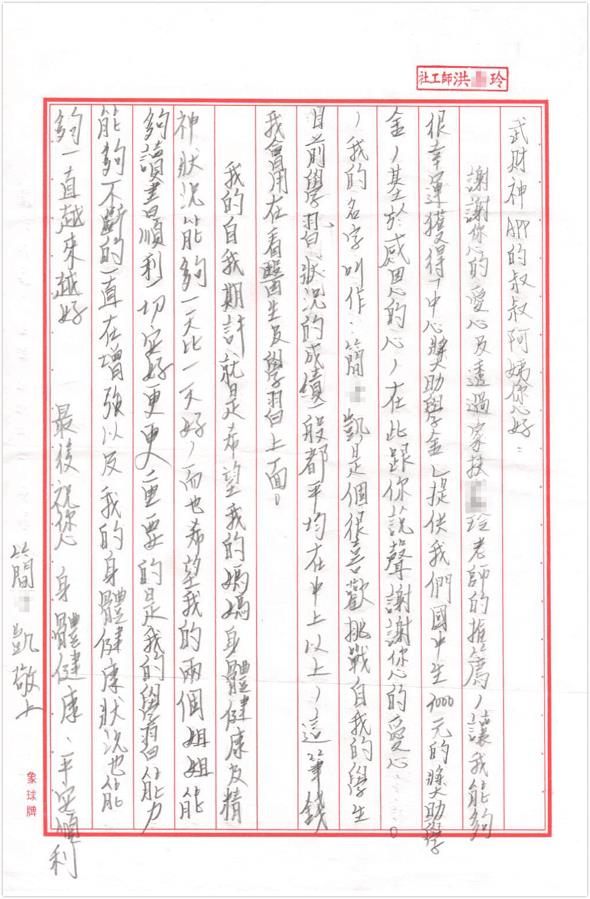 社工師洪玲
武財神APP的叔叔阿姨你好：
謝謝您的愛心及透過家扶玲老師的推薦，讓我能夠
很幸運獲得「中心獎助學金」提供我們國中生1000元的獎助學
金，基於感恩的心，在此跟你說聲謝謝您的愛心……。
，我的名字叫作：簡凱是個很喜歡挑戰自我的學生
目前學習狀況的成績一般都平均在中上以上，這筆錢
我會用在看醫生及學習上面。
我的自我期許就是希望我的媽媽身體健康及精
神狀況能夠一天比一天好，而也希望我的兩個姐姐能
夠讀書順利一切安好更更重要的是我的學習能力
能夠不斷的一直在增強以及我的身體健康狀況也能
夠一直越來越好 最後祝您 身體健康、平安順利
簡凱敬上
象球牌